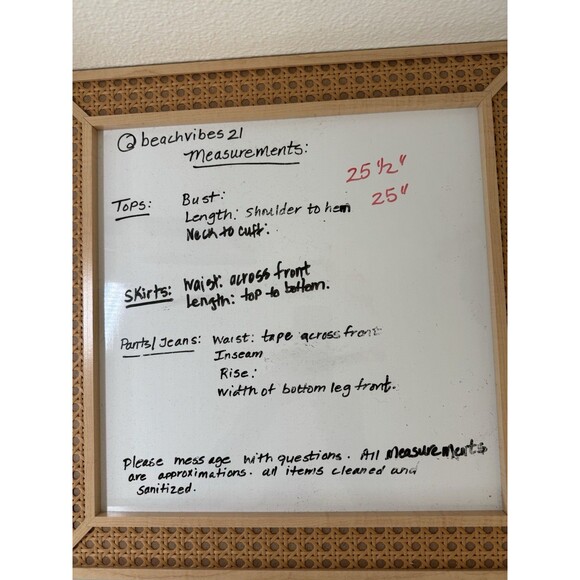 @beachvibes21
Measurements:
Tops: Bust: 25 1/2"
Length: Shoulder to hem 25"
Neck to cuff:
Skirts: Waist: across front
Length: top to bottom.
Pants/Jeans: Waist: tape across front
Inseam
Rise:
Width of bottom leg front.
Please message with questions. All measurements
are approximations. all items cleaned and
sanitized.